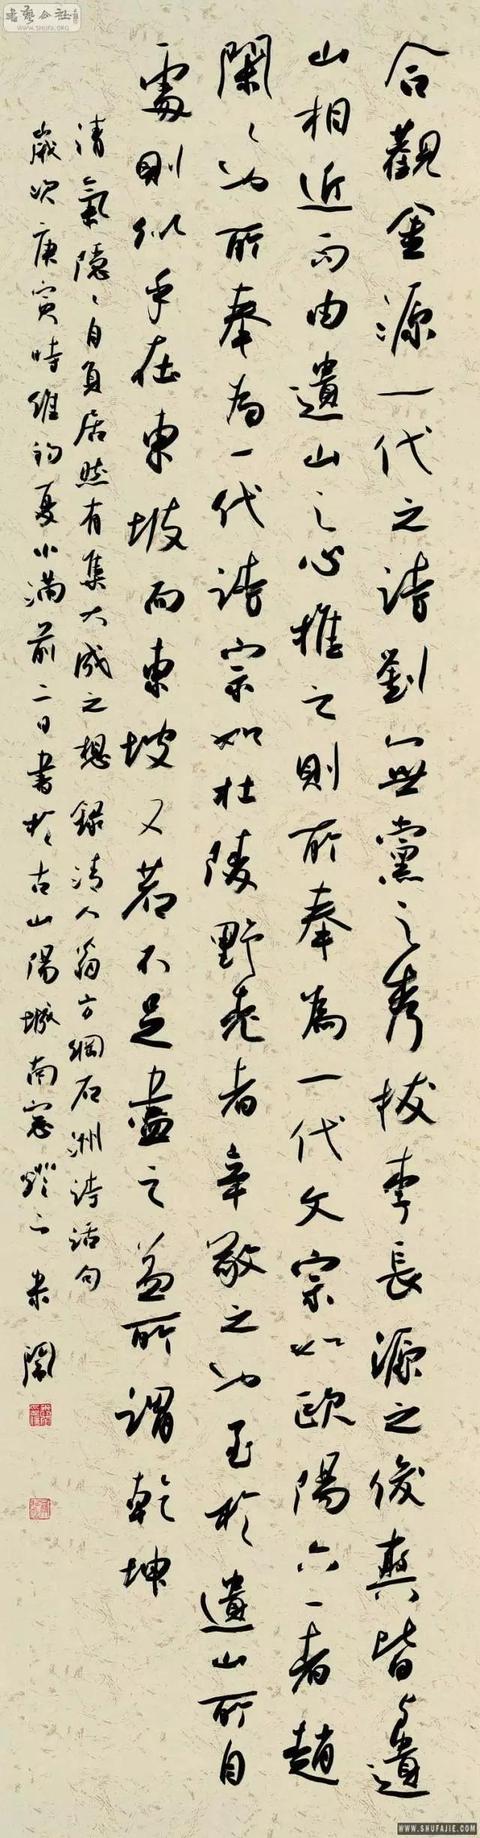 WWW.SHUFA.ORG
合觀金源一代之詩劉無黨之秀拔李長源之俊爽皆与遺
山相近而由遺山之心推之則所奉為一代文宗如歐陽六一者趙
閑々也所奉為一代詩宗如杜陵野老者辛敬之也至於遺山所自
處則似乎在東坡而東坡又若不足盡之蓋所謂乾坤
清氣隱々自負居然有集大成之想 錄清人翁方綱石洲詩話句
歲次庚寅時維初夏小滿前二日書於古山陽城南窗燈下
WWW.SHUFAJIE.COM